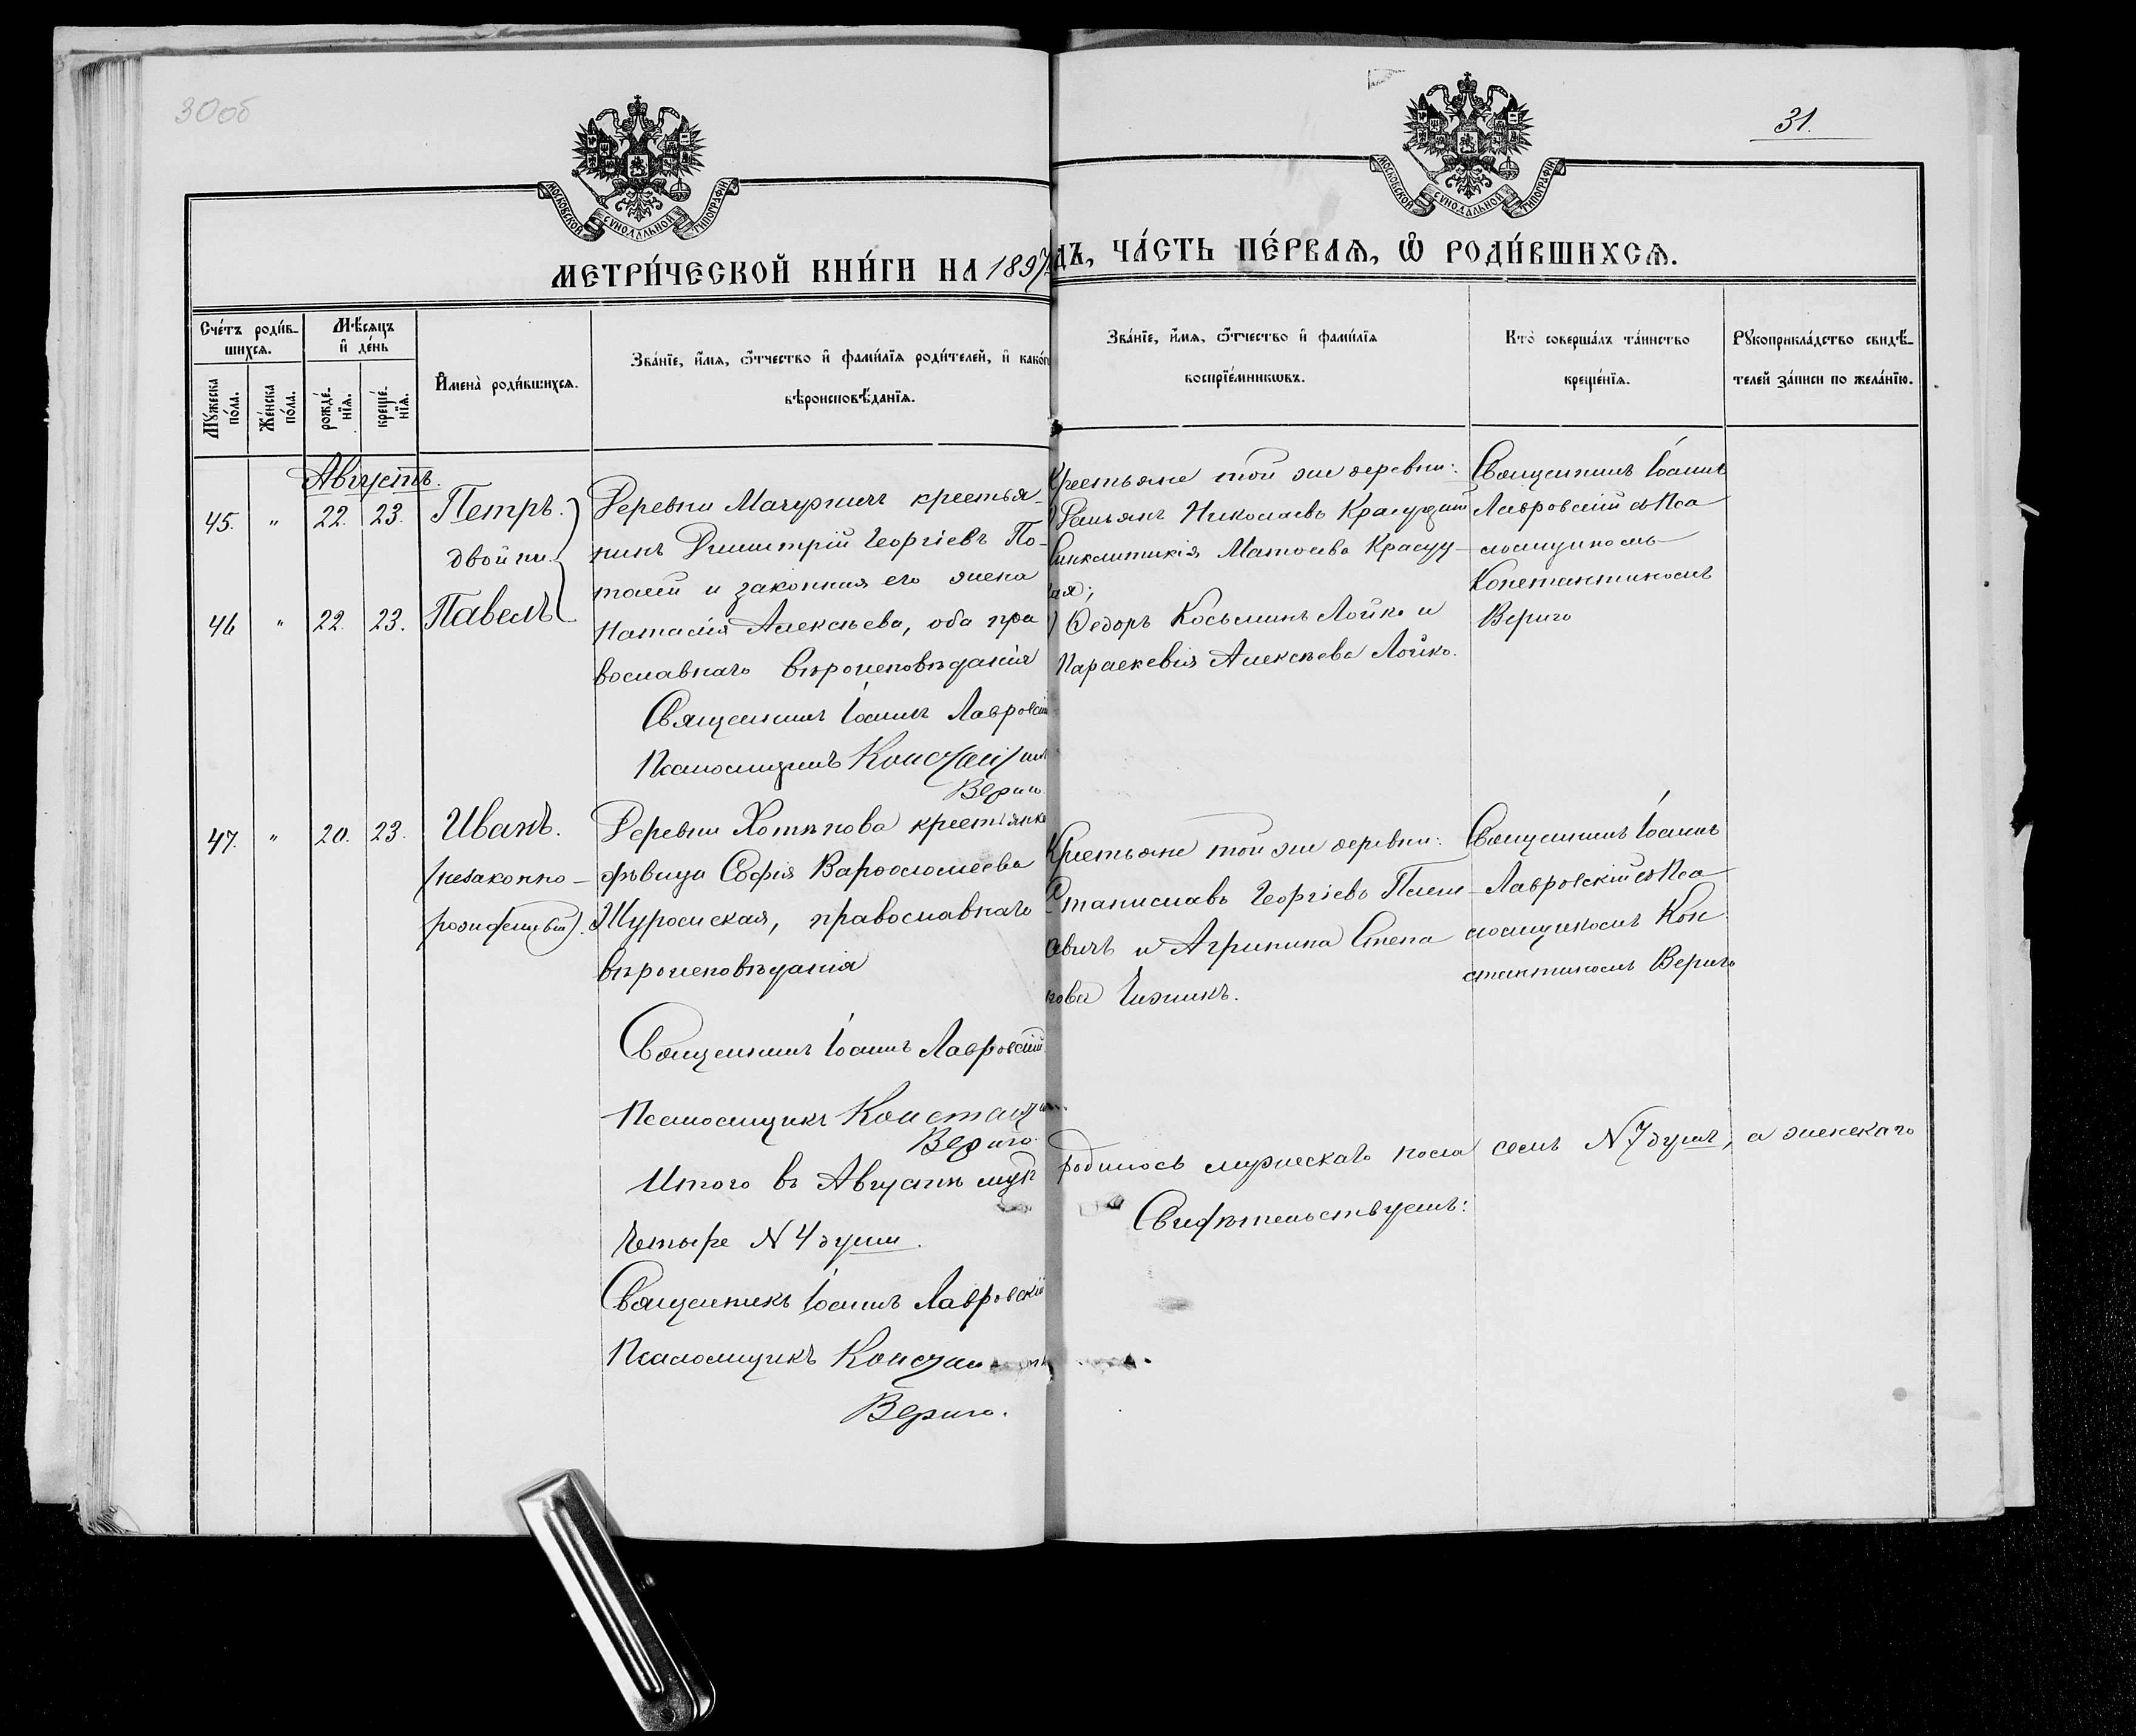 30об
31.
МОСКОВСКОЙ СѴНОДАЛЬНОЙ ТИПОГРАФІИ
МОСКОВСКОЙ СѴНОДАЛЬНОЙ ТИПОГРАФІИ
МЕТРИ́ЧЕСКОЙ КНИ́ГИ НА 1897
ДЪ, ЧА́СТЬ ПЕ́РВАѦ, Ѡ҆ РОДИ́ВШИХСѦ.
Сче́тъ роди́в-
шихсѧ.
Мѣ́сѧцъ
и҆ де́нь
Мꙋ́жеска
по́ла.
Же́нска
по́ла.
рожде́-
нїѧ.
креще́-
нїѧ.
И҆мена̀ роди́вшихсѧ.
Зва́нїе, и҆́мѧ, ѻ҆́тчество и҆ фами́лїѧ роди́телей, и҆ како́г
вѣроисповѣ́данїѧ.
Зва́нїе, и҆́мѧ, ѻ҆́тчество и҆ фами́лїѧ
воспрїе́мникѡвъ.
Кто̀ соверша́лъ та́инство
креще́нїѧ.
Рꙋкоприкла́дство свидѣ́-
телей за́писи по жела́нїю.
Августъ.
45. " 22. 23. Петръ.
двойни.
46 " 22. 23. Павелъ
Деревни Мачульничь крестья-
нинъ Димитрій Георгіевъ По-
и законная его жена
Наталія Алексѣева, оба пра
вославнаго вѣроисповѣданія
Священникъ Іоаннъ Лавровскій
Псаломщикъ Константинъ
Вериго
Крестьяне той же деревни:
Николаевъ Красуцкій
Синклитикія Матвѣева Красуц-
ая;
Ѳедоръ Косьминъ Лойко и
Параскевія Алексѣева Лойко.
Священникъ Іоаннъ
Лавровскій съ Пса
ломщикомъ
Константиномъ
Вериго
47. " 20. 23. Иванъ.
(незаконно-
рожденный).
Деревни Хотѣнова крестьянка
дѣвица Софія Варѳоломеева
Журомская, православнаго
вѣроисповѣданія
Священникъ Іоаннъ Лавровскій
Псаломщикъ Константинъ
Вериго
Крестьяне той же деревни:
Станиславъ Георгіевъ
овичъ и Агрипина Степа
нова Чижикъ.
Священникъ Іоаннъ
Лавровскій съ Пса
ломщикомъ Кон
стантиномъ Вериго
Итого въ Августѣ мѣс
родилось мужескаго пола семь N 7 душъ, а женскаго
четыре N 4 души.
Свидѣтельствуемъ:
Священникъ Іоаннъ Лавровскій
Псаломщикъ Константинъ
Вериго.